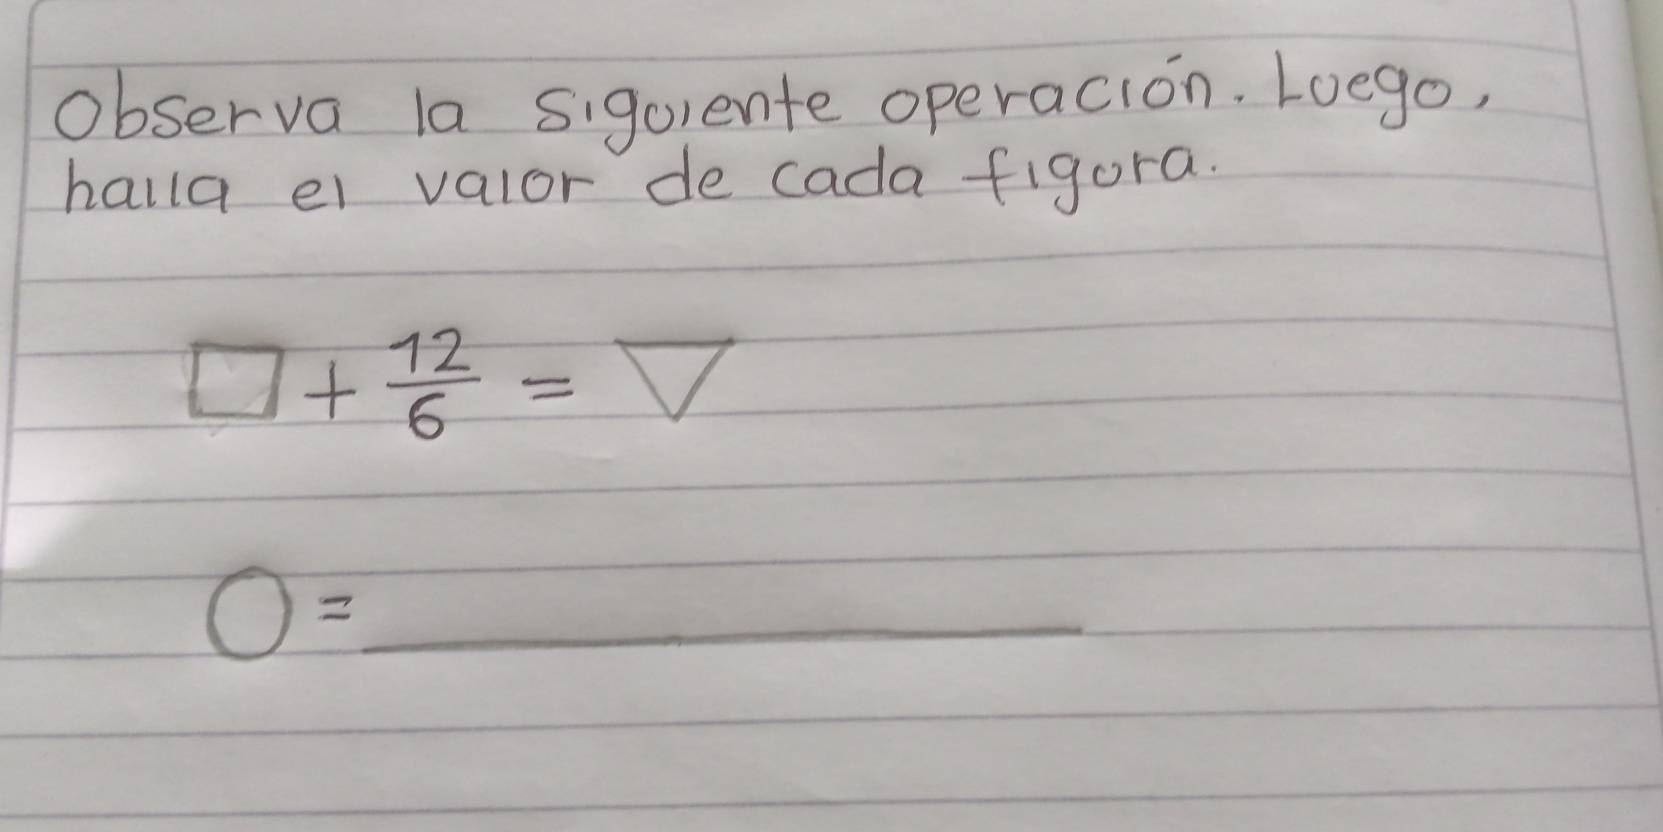 Observa la siguiente operación. Luego,
halla el valor de cada figura.
□ + 12/6 = ▽
○ = ____________